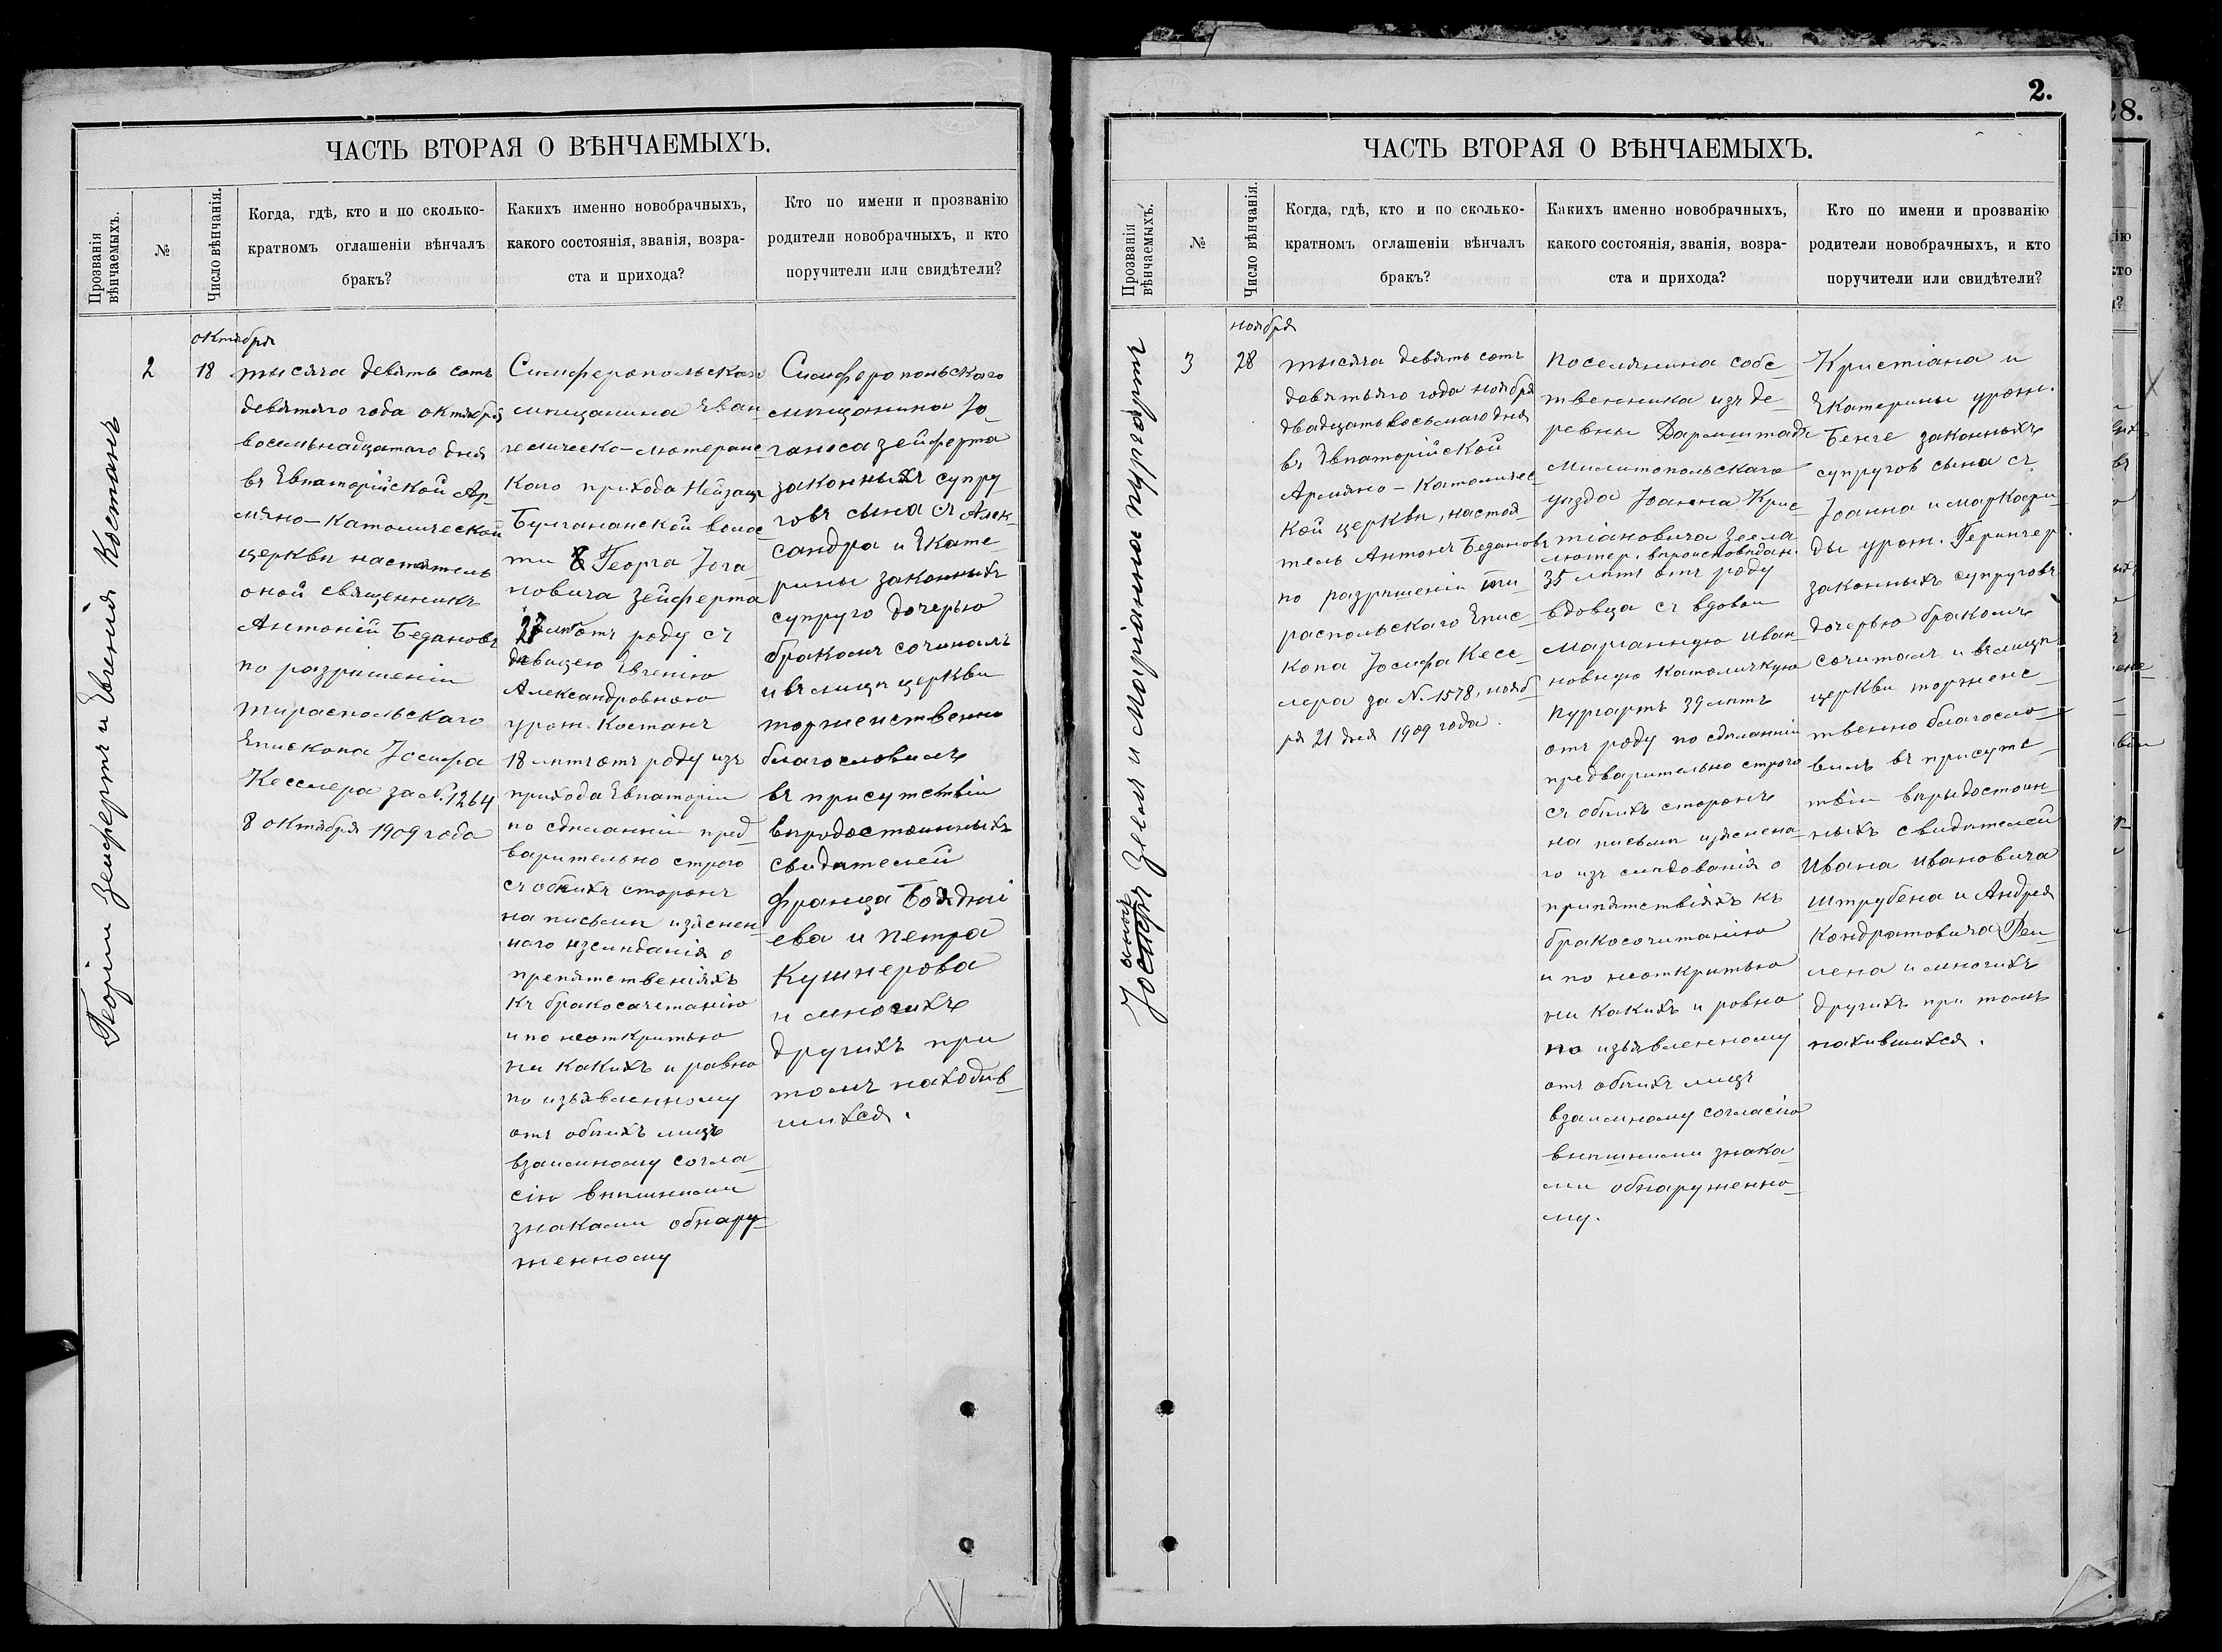 ЧАСТЬ ВТОРАЯ О ВѢНЧАЕМЫХЪ.
Прозванія вѣнчаемыхъ.
№
Число вѣнчанія.
Когда, гдѣ, кто и по сколько-
кратномъ оглашеніи вѣнчалъ
бракъ?
Какихъ именно новобрачныхъ,
какого состоянія, званія, возра-
ста и прихода?
Кто по имени и прозванію
родители новобрачныхъ, и кто
поручители или свидѣтели?
Георгій Зейфертъ и Евгенія Костанъ
октября
2
18
тысяча девять сотъ
девятаго года октября
восемьнадцатаго дня
въ Евпаторійской Ар-
мяно-Католической
церкви настоятель
оной священникъ
Антоній Бедановъ
по разрѣшенію
тираспольскаго
Епископа Іосифа
Кесслера за N. 1264
8 октября 1909 года
Симферопольскаго
мѣщанина Еван
гелическо-лютеранс-
каго прихода Нейзацъ
Булгананской волос
ти Георга Іога-
новича Зейферта
27 лѣтъ отъ роду съ
дѣвицею Евгенію
Александровною
урож. Костанъ
18 лѣтъ отъ роду изъ
прихода Евпаторіи
по сдѣланніи пред-
варительно строго
съ обѣихъ сторонъ
на письмѣ изяснен-
наго изслѣданія о
препятственіяхъ
къ бракосачетанію
и по неоткрытью
ни какихъ и равно
по изъявленному
отъ обѣихъ лицъ
взаимному согла-
сію внѣшними
знаками обнару-
женному
Симферопольскаго
мѣщанина Іо-
ганеса Зейферта
законныхъ супру
говъ сына съ Алек-
сандра и Екате-
рины законныхъ
супруго дочерью
бракомъ сочиталъ
и въ лицѣ церкви
торжественно
благословилъ
въ присутствіи
вѣродостоинныхъ
свидѣтелей
Франца
ева и Петра
Кушнерова
и многихъ
другихъ при
томъ находив-
шихся.
2.
ЧАСТЬ ВТОРАЯ О ВѢНЧАЕМЫХЪ.
Прозванія вѣнчаемыхъ.
№
Число вѣнчанія.
Когда, гдѣ, кто и по сколько-
кратномъ оглашеніи вѣнчалъ
бракъ?
Какихъ именно новобрачныхъ,
какого состоянія, званія, возра-
ста и прихода?
Кто по имени и прозванію
родители новобрачныхъ, и кто
поручители или свидѣтели?
Іоаннъ Зеель и Маріанна Пургартъ
ноября
3
28
тысяча девять сотъ
девятьяго года ноября
двадцать восьмаго дня
въ Евпаторійской
Армяно-Католичес-
кой церкви, настоя-
тель Антонъ Бедановъ
по разрѣшеніи ти-
распольскаго Епис-
копа Іосифа Кесс-
лера за N. 1578, нояб
ря 21 дня 1909 года.
Поселянина собс-
твенника изъ де-
ревни Дармштадъ
Милитопольскаго
уѣзда Іоанна Крис-
тіановича Зеела
лютер. вѣроисповѣдан.
35 лѣтъ отъ роду
вдовца съ вдовои
Марианную Иван
новную Католичкую
Пургартъ 39 лѣтъ
отъ роду по сдѣланніи
предварительно строго
съ обѣихъ сторонъ
на письмѣ изяснена-
го изъ слѣдованія о
припятствіяхъ къ
бракосочитанію
и по неоткрытью
ни какихъ и ровно
по изъявленному
отъ обѣихъ лицъ
взаимному согласію
внѣшними знака-
ми обнаруженно-
му.
Кристіана и
Екатерины урож.
Бенге законныхъ
супруговъ сына съ
Іоанна и Маргари-
ды урож. Герингер.
законныхъ супруговъ
дочерью бракомъ
сочиталъ и въ лицѣ
церкви торженс-
твенно благосло-
вилъ въ присутс-
твіи вѣрыдостоин-
ныхъ свидѣтелей
Ивана Ивановича
Штрубена и Андрея
Кондратовича
лена и многихъ
другихъ при томъ
нахившихся.
28.